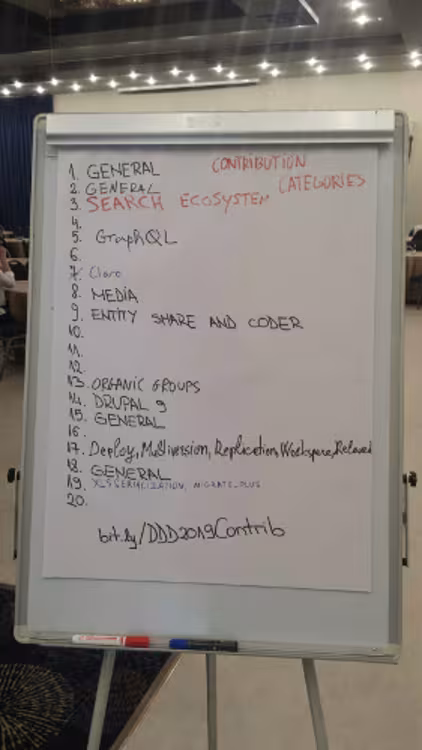 1. GENERAL CONTRIBUTION
2. GENERAL CATEGORIES
3. SEARCH ECOSYSTEM
4.
5. GraphQL
6.
7. Claro
8. MEDIA
9. ENTITY SHARE AND CODER
10.
11.
12.
13. ORGANIC GROUPS
14. DRUPAL 9
15. GENERAL
16.
17. Deploy, Multiversion, Replication, Workspace, Relaxed
18. GENERAL
19. XLS SERIALIZATION, MIGRATE_PLUS
20.
bit.ly/DDD2019Contrib